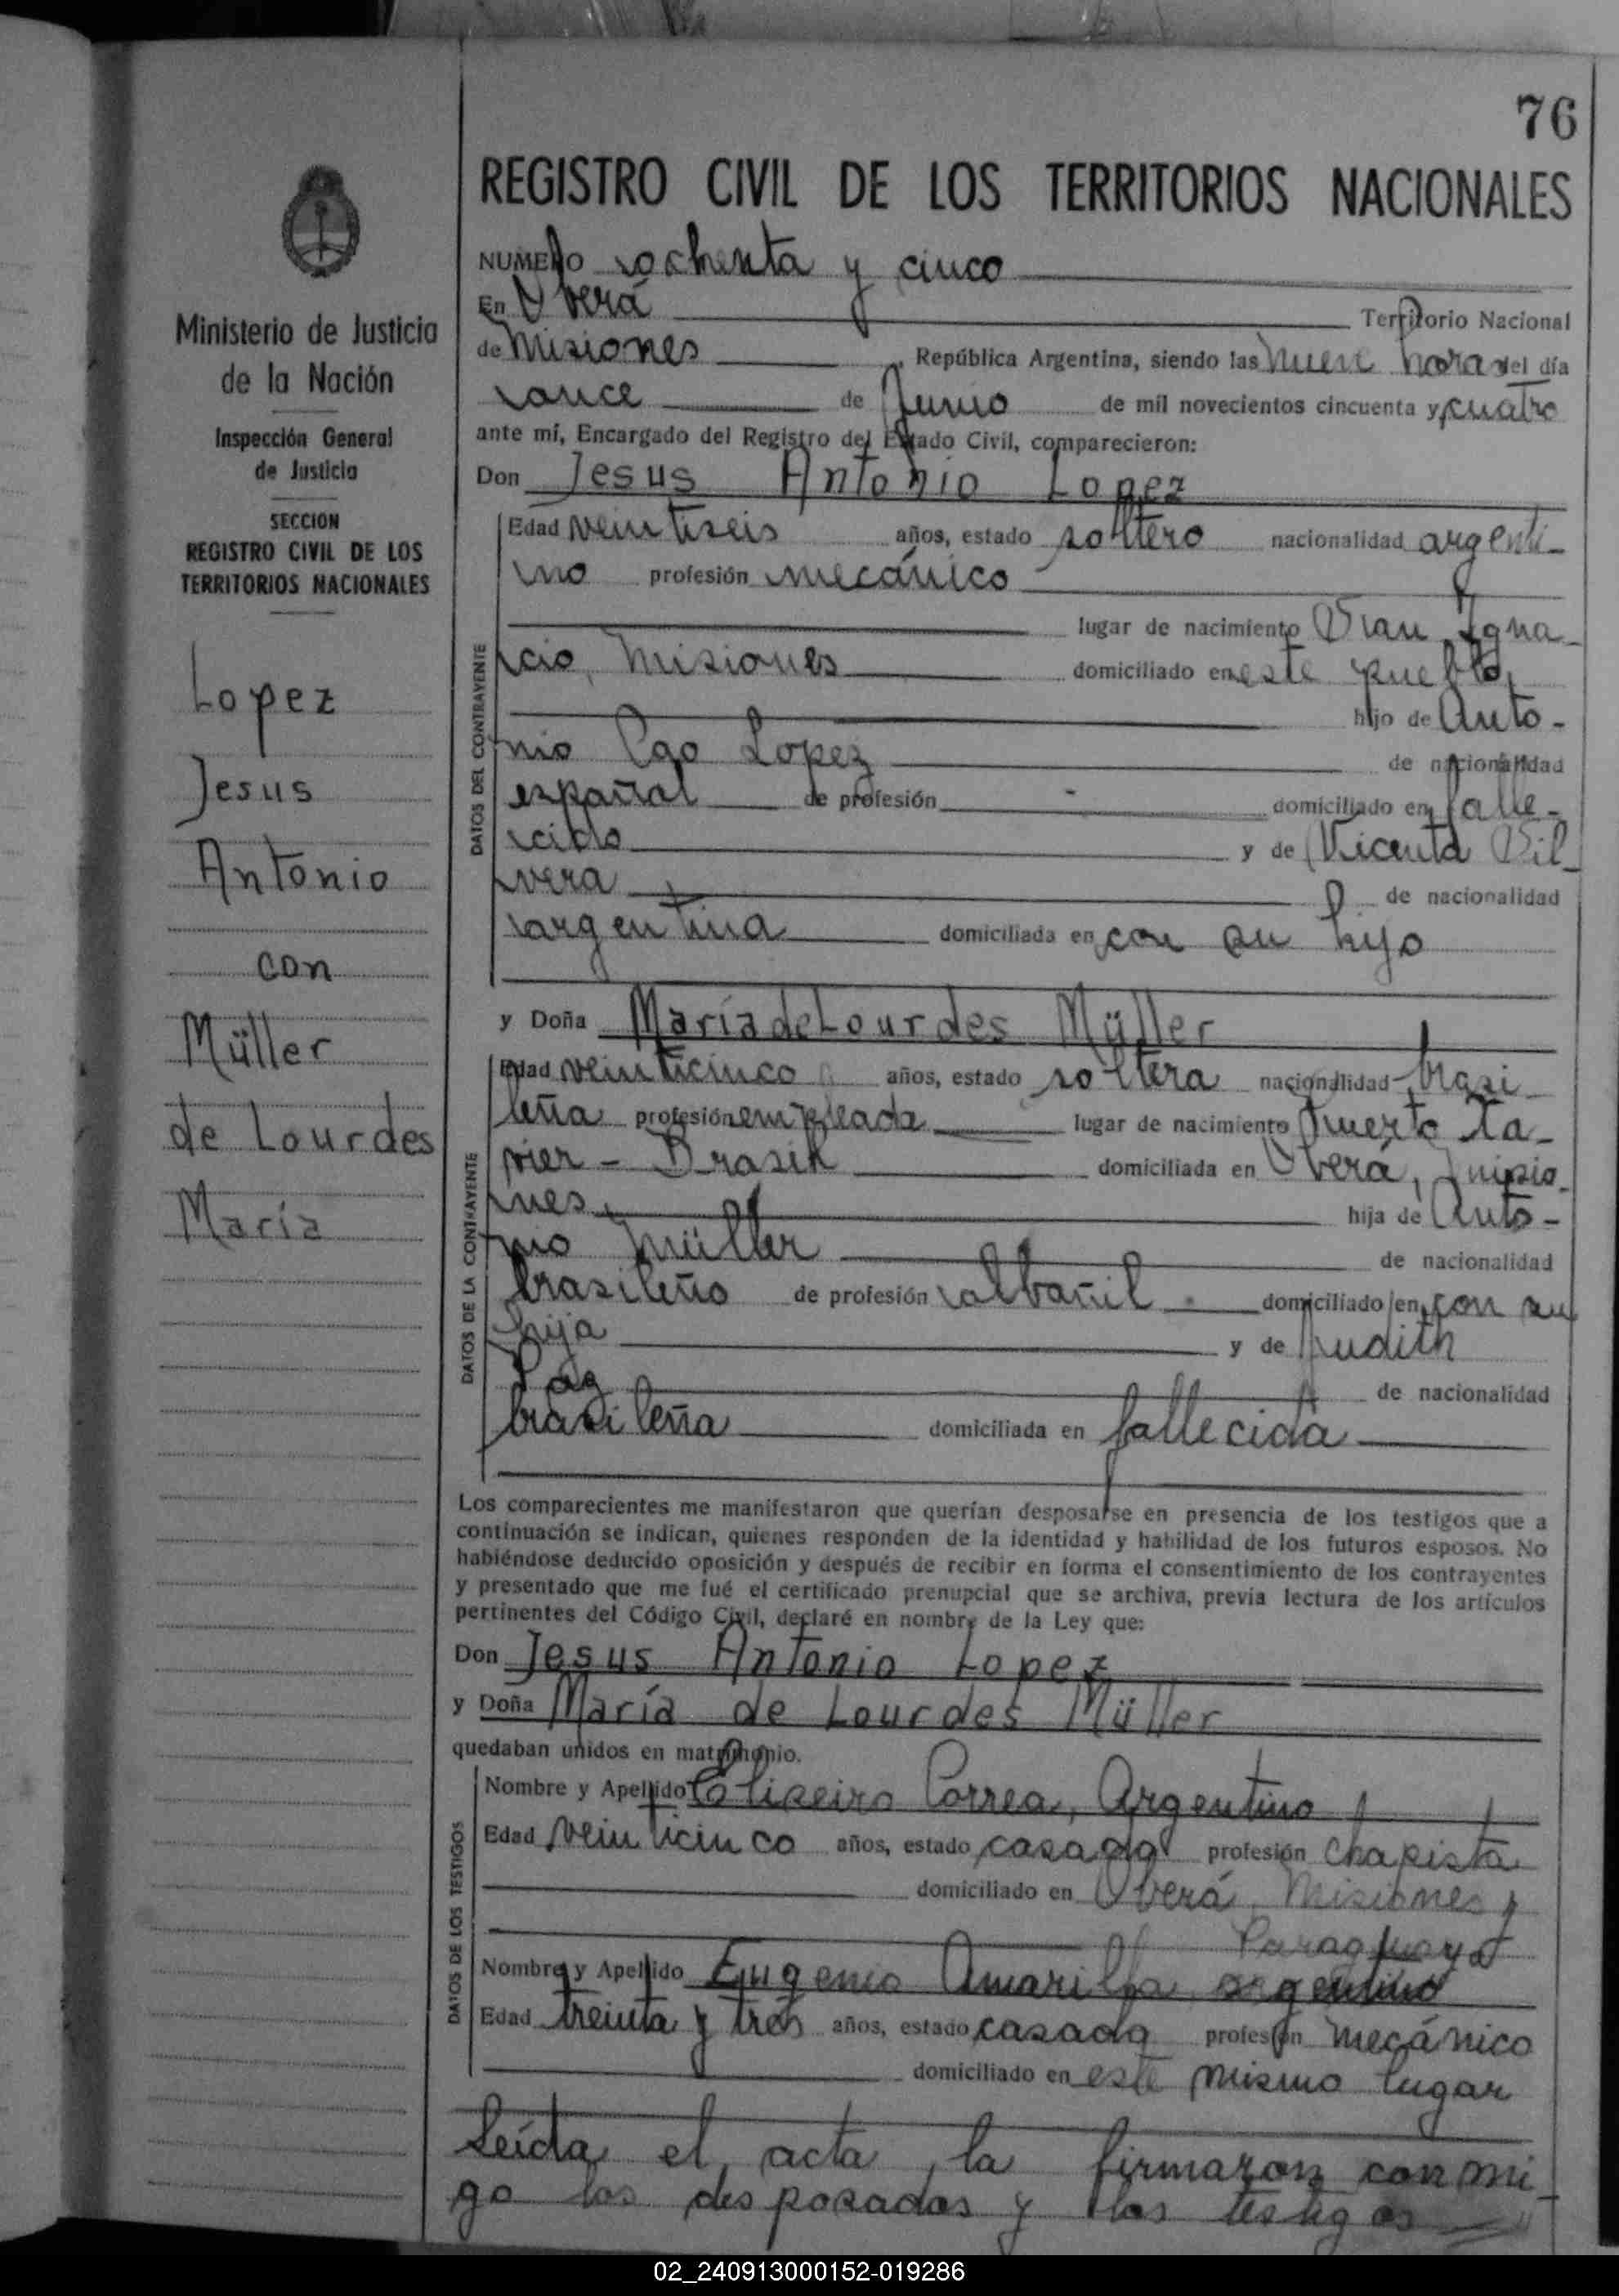 76
REGISTRO CIVIL DE LOS TERRITORIOS NACIONALES
Ministerio de Justicia
de la Nación
Inspección General
de Justicia
SECCION
REGISTRO CIVIL DE LOS
TERRITORIOS NACIONALES
Lopez
Jesus
Antonio
con
Müller
de Lourdes
María
NUMERO ochenta y cinco
En Oberá Territorio Nacional
de Misiones, República Argentina, siendo las nueve horas del día
once de Junio de mil novecientos cincuenta y cuatro
ante mí, Encargado del Registro del Estado Civil, comparecieron:
Don Jesus Antonio Lopez
DATOS DEL CONTRAYENTE
Edad veintiseis años, estado soltero nacionalidad argenti-
no profesión mecánico
lugar de nacimiento San Igna-
cio, Misiones domiciliado en este pueblo,
hijo de Anto-
nio Lopez de nacionalidad
español de profesión - domiciliado en falle-
cido y de Vicenta Sil-
vera de nacionalidad
argentina domiciliada en con su hijo
y Doña María de Lourdes Müller
DATOS DE LA CONTRAYENTE
Edad veinticinco años, estado soltera nacionalidad brasi
leña profesión empleada lugar de nacimiento Puerto Xa-
vier - Brasil domiciliada en Oberá, Misio-
nes, hija de Anto-
nio Müller de nacionalidad
brasileño de profesión albañil domiciliado en con su
hija y de Judith
de nacionalidad
brasileña domiciliada en fallecida
Los comparecientes me manifestaron que querían desposarse en presencia de los testigos que a
continuación se indican, quienes responden de la identidad y habilidad de los futuros esposos. No
habiéndose deducido oposición y después de recibir en forma el consentimiento de los contrayentes
y presentado que me fué el certificado prenupcial que se archiva, previa lectura de los artículos
pertinentes del Código Civil, declaré en nombre de la Ley que:
Don Jesus Antonio Lopez
y Doña María de Lourdes Müller
quedaban unidos en matrimonio.
DATOS DE LOS TESTIGOS
Nombre y Apellido Eliseiro Correa, Argentino
Edad veinticinco años, estado casado profesión chapista
domiciliado en Oberá, Misiones y
Paraguayo
Nombre y Apellido Eugenio Amarilla argentino
Edad treinta y tres años, estado casado profesión mecánico
domiciliado en este mismo lugar
Leída el acta, la firmaron conmi-
go los desposados y los testigos
02_240913000152-019286